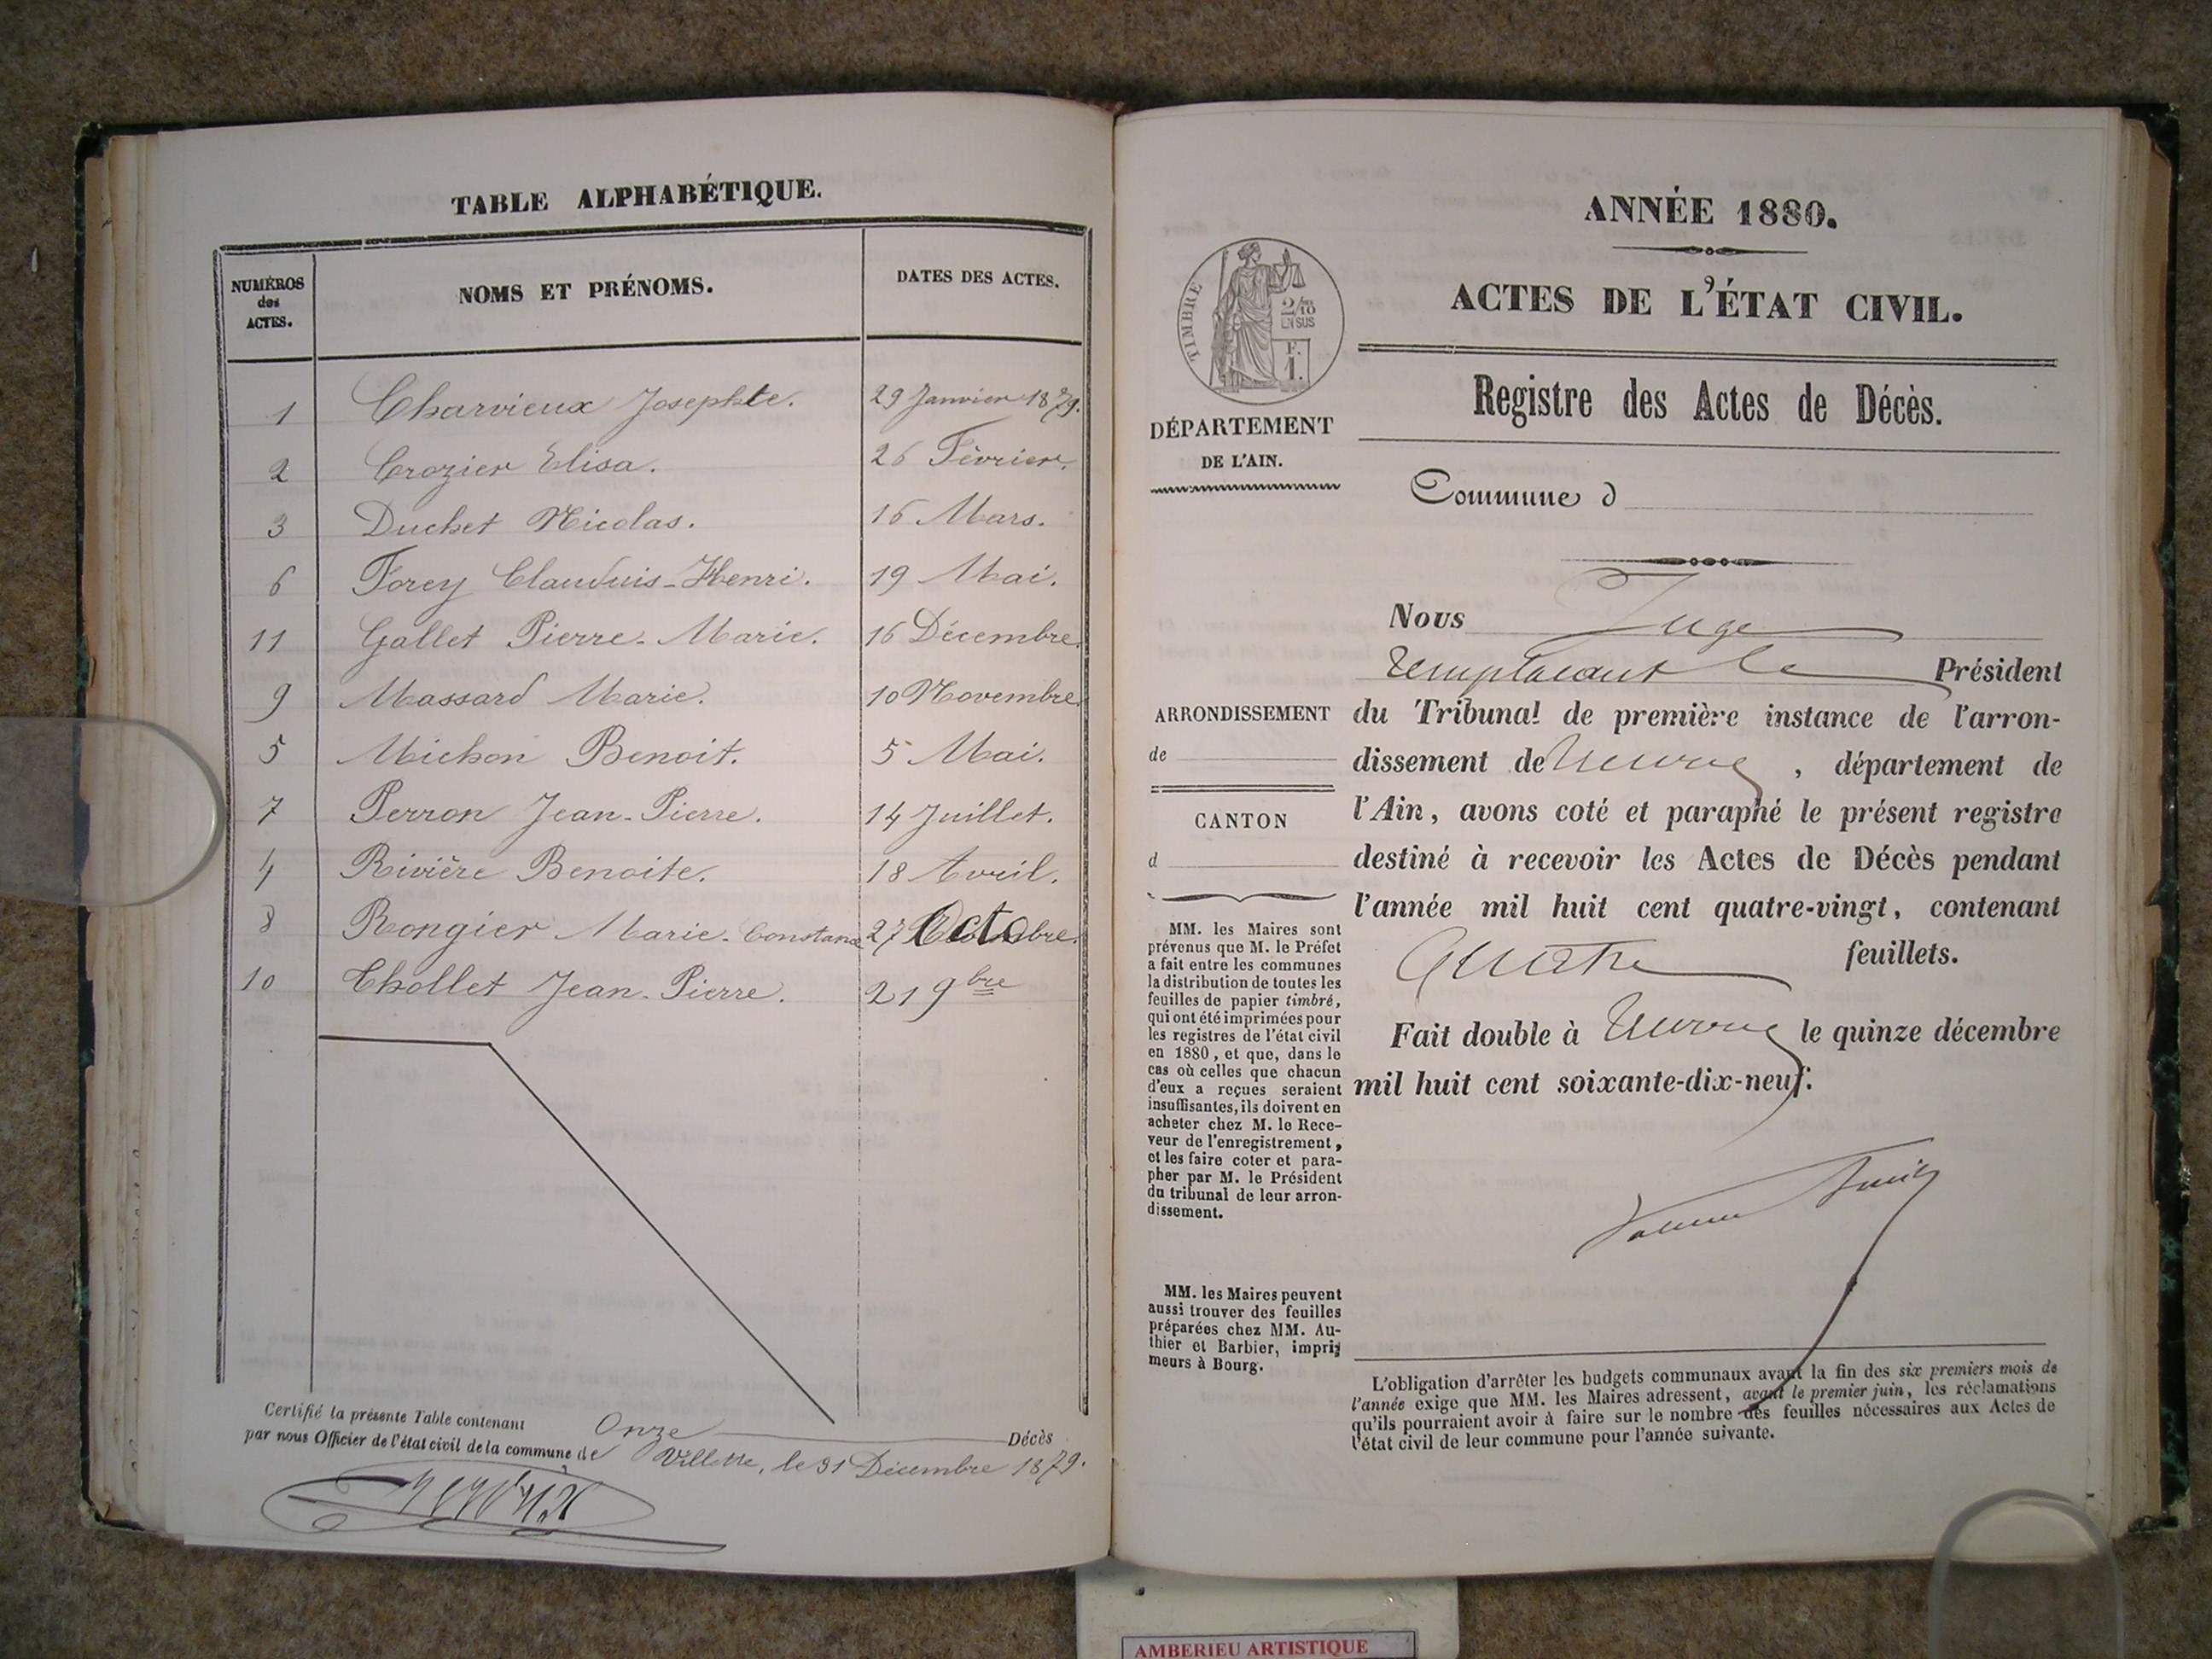 TABLE ALPHABÉTIQUE.
NUMÉROS des ACTES. NOMS ET PRÉNOMS. DATES DES ACTES.
1 Charvieux Josephte. 29 Janvier 1879.
2 Crozier Elisa. 26 Février.
3 Duchet Nicolas. 16 Mars.
6 Forey Claudius-Henri. 19 Mai.
11 Gallet Pierre-Marie. 16 Décembre.
9 Massard Marie. 10 Novembre.
5 Michon Benoit. 5 Mai.
7 Perron Jean-Pierre. 14 Juillet.
4 Rivière Benoite. 18 Avril.
8 Rongier Marie-Constance 27 Octobre.
10 Thollet Jean-Pierre. 21 9bre
Certifié la présente Table contenant Onze Décès
par nous Officier de l'état civil de la commune de Villette, le 31 Décembre 1879.
ANNÉE 1880.
ACTES DE L'ÉTAT CIVIL.
TIMBRE
2/10
EN SUS
F.
1.
DÉPARTEMENT
DE L'AIN.
Registre des Actes de Décès.
Commune d
Nous Juge
remplacant le Président
du Tribunal de première instance de l'arron-
dissement de Trevoux, département de
l'Ain, avons coté et paraphé le présent registre
destiné à recevoir les Actes de Décès pendant
l'année mil huit cent quatre-vingt, contenant
Quatre feuillets.
Fait double à Trevoux le quinze décembre
mil huit cent soixante-dix-neuf.
ARRONDISSEMENT
de
CANTON
d
MM. les Maires sont
prévenus que M. le Préfet
a fait entre les communes
la distribution de toutes les
feuilles de papier timbré,
qui ont été imprimées pour
les registres de l'état civil
en 1880, et que, dans le
cas où celles que chacun
d'eux a reçues seraient
insuffisantes, ils doivent en
acheter chez M. le Rece-
veur de l'enregistrement,
et les faire coter et para-
pher par M. le Président
du tribunal de leur arron-
dissement.
MM. les Maires peuvent
aussi trouver des feuilles
préparées chez MM. Au-
thier et Barbier, impri-
meurs à Bourg.
L'obligation d'arrêter les budgets communaux avant la fin des six premiers mois de
l'année exige que MM. les Maires adressent, avant le premier juin, les réclamations
qu'ils pourraient avoir à faire sur le nombre des feuilles nécessaires aux Actes de
l'état civil de leur commune pour l'année suivante.
AMBERIEU ARTISTIQUE